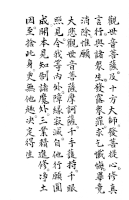 觀世音菩薩及十方大師發菩提心修真
言行與諸眾生發露眾罪求乞懺悔畢竟
消除惟願
大悲觀世音菩薩摩訶薩千手護持千眼
照見令我等內外障緣寂滅自他行願圓
成開本見知制諸魔外三業精進修淨土
因至捨此身更無他趣決定得生